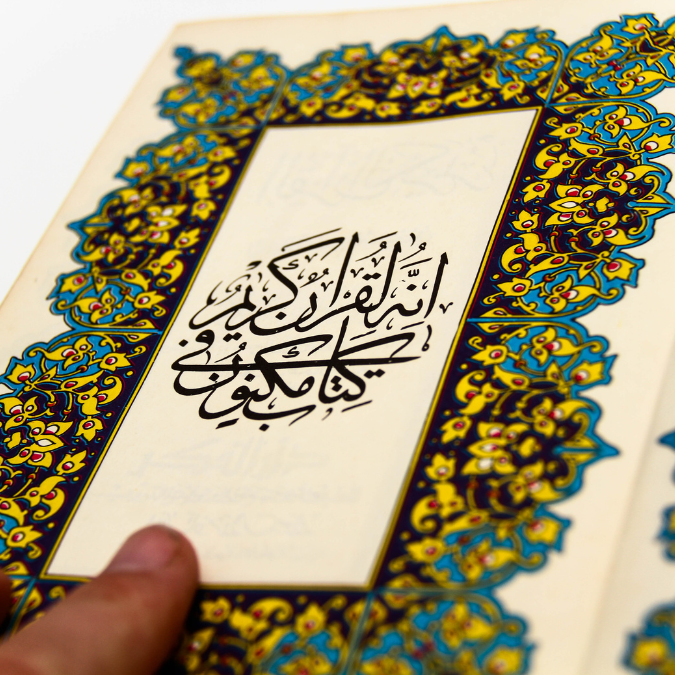 إنه لقرآن كريم
في كتاب مكنون